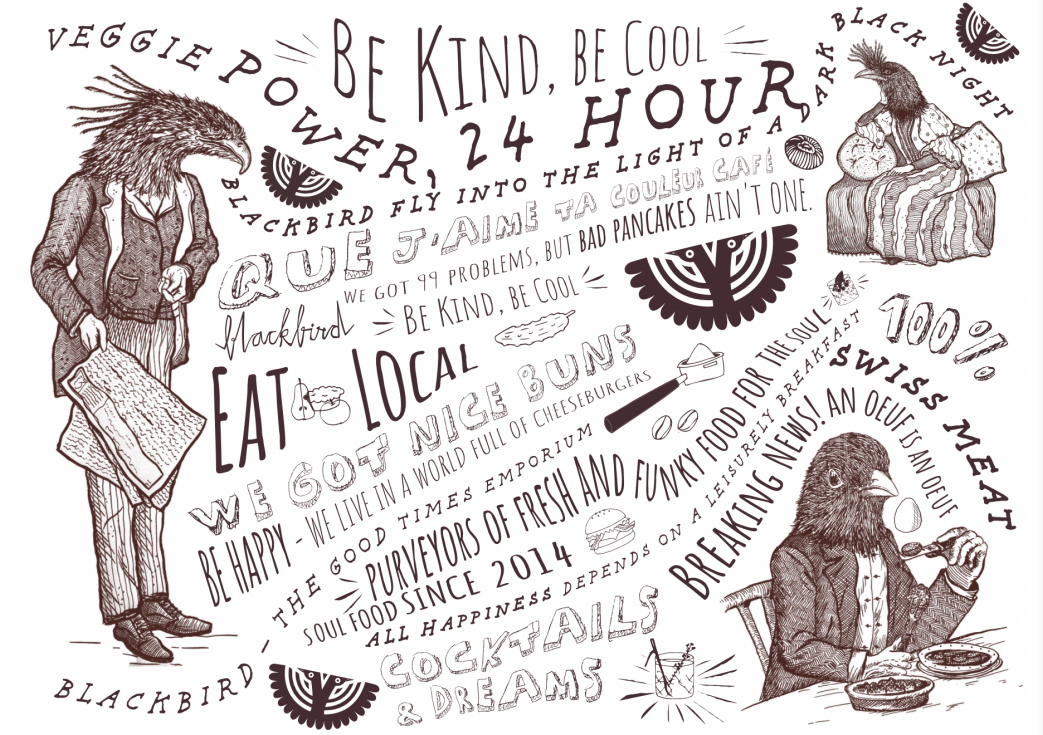 BE KIND, BE COOL
VEGGIE POWER, 24 HOUR
BLACKBIRD FLY INTO THE LIGHT OF A DARK BLACK NIGHT
QUE J'AIME TA COULEUR CAFÉ
WE GOT 99 PROBLEMS, BUT BAD PANCAKES AIN'T ONE.
blackbird
BE KIND, BE COOL
EAT LOCAL
100%
SWISS MEAT
WE GOT NICE BUNS
BE HAPPY - WE LIVE IN A WORLD FULL OF CHEESEBURGERS
BLACKBIRD - THE GOOD TIMES EMPORIUM
PURVEYORS OF FRESH AND FUNKY FOOD FOR THE SOUL
SOUL FOOD SINCE 2014
ALL HAPPINESS DEPENDS ON A LEISURELY BREAKFAST
BREAKING NEWS! AN OEUF IS AN OEUF
COCKTAILS
& DREAMS